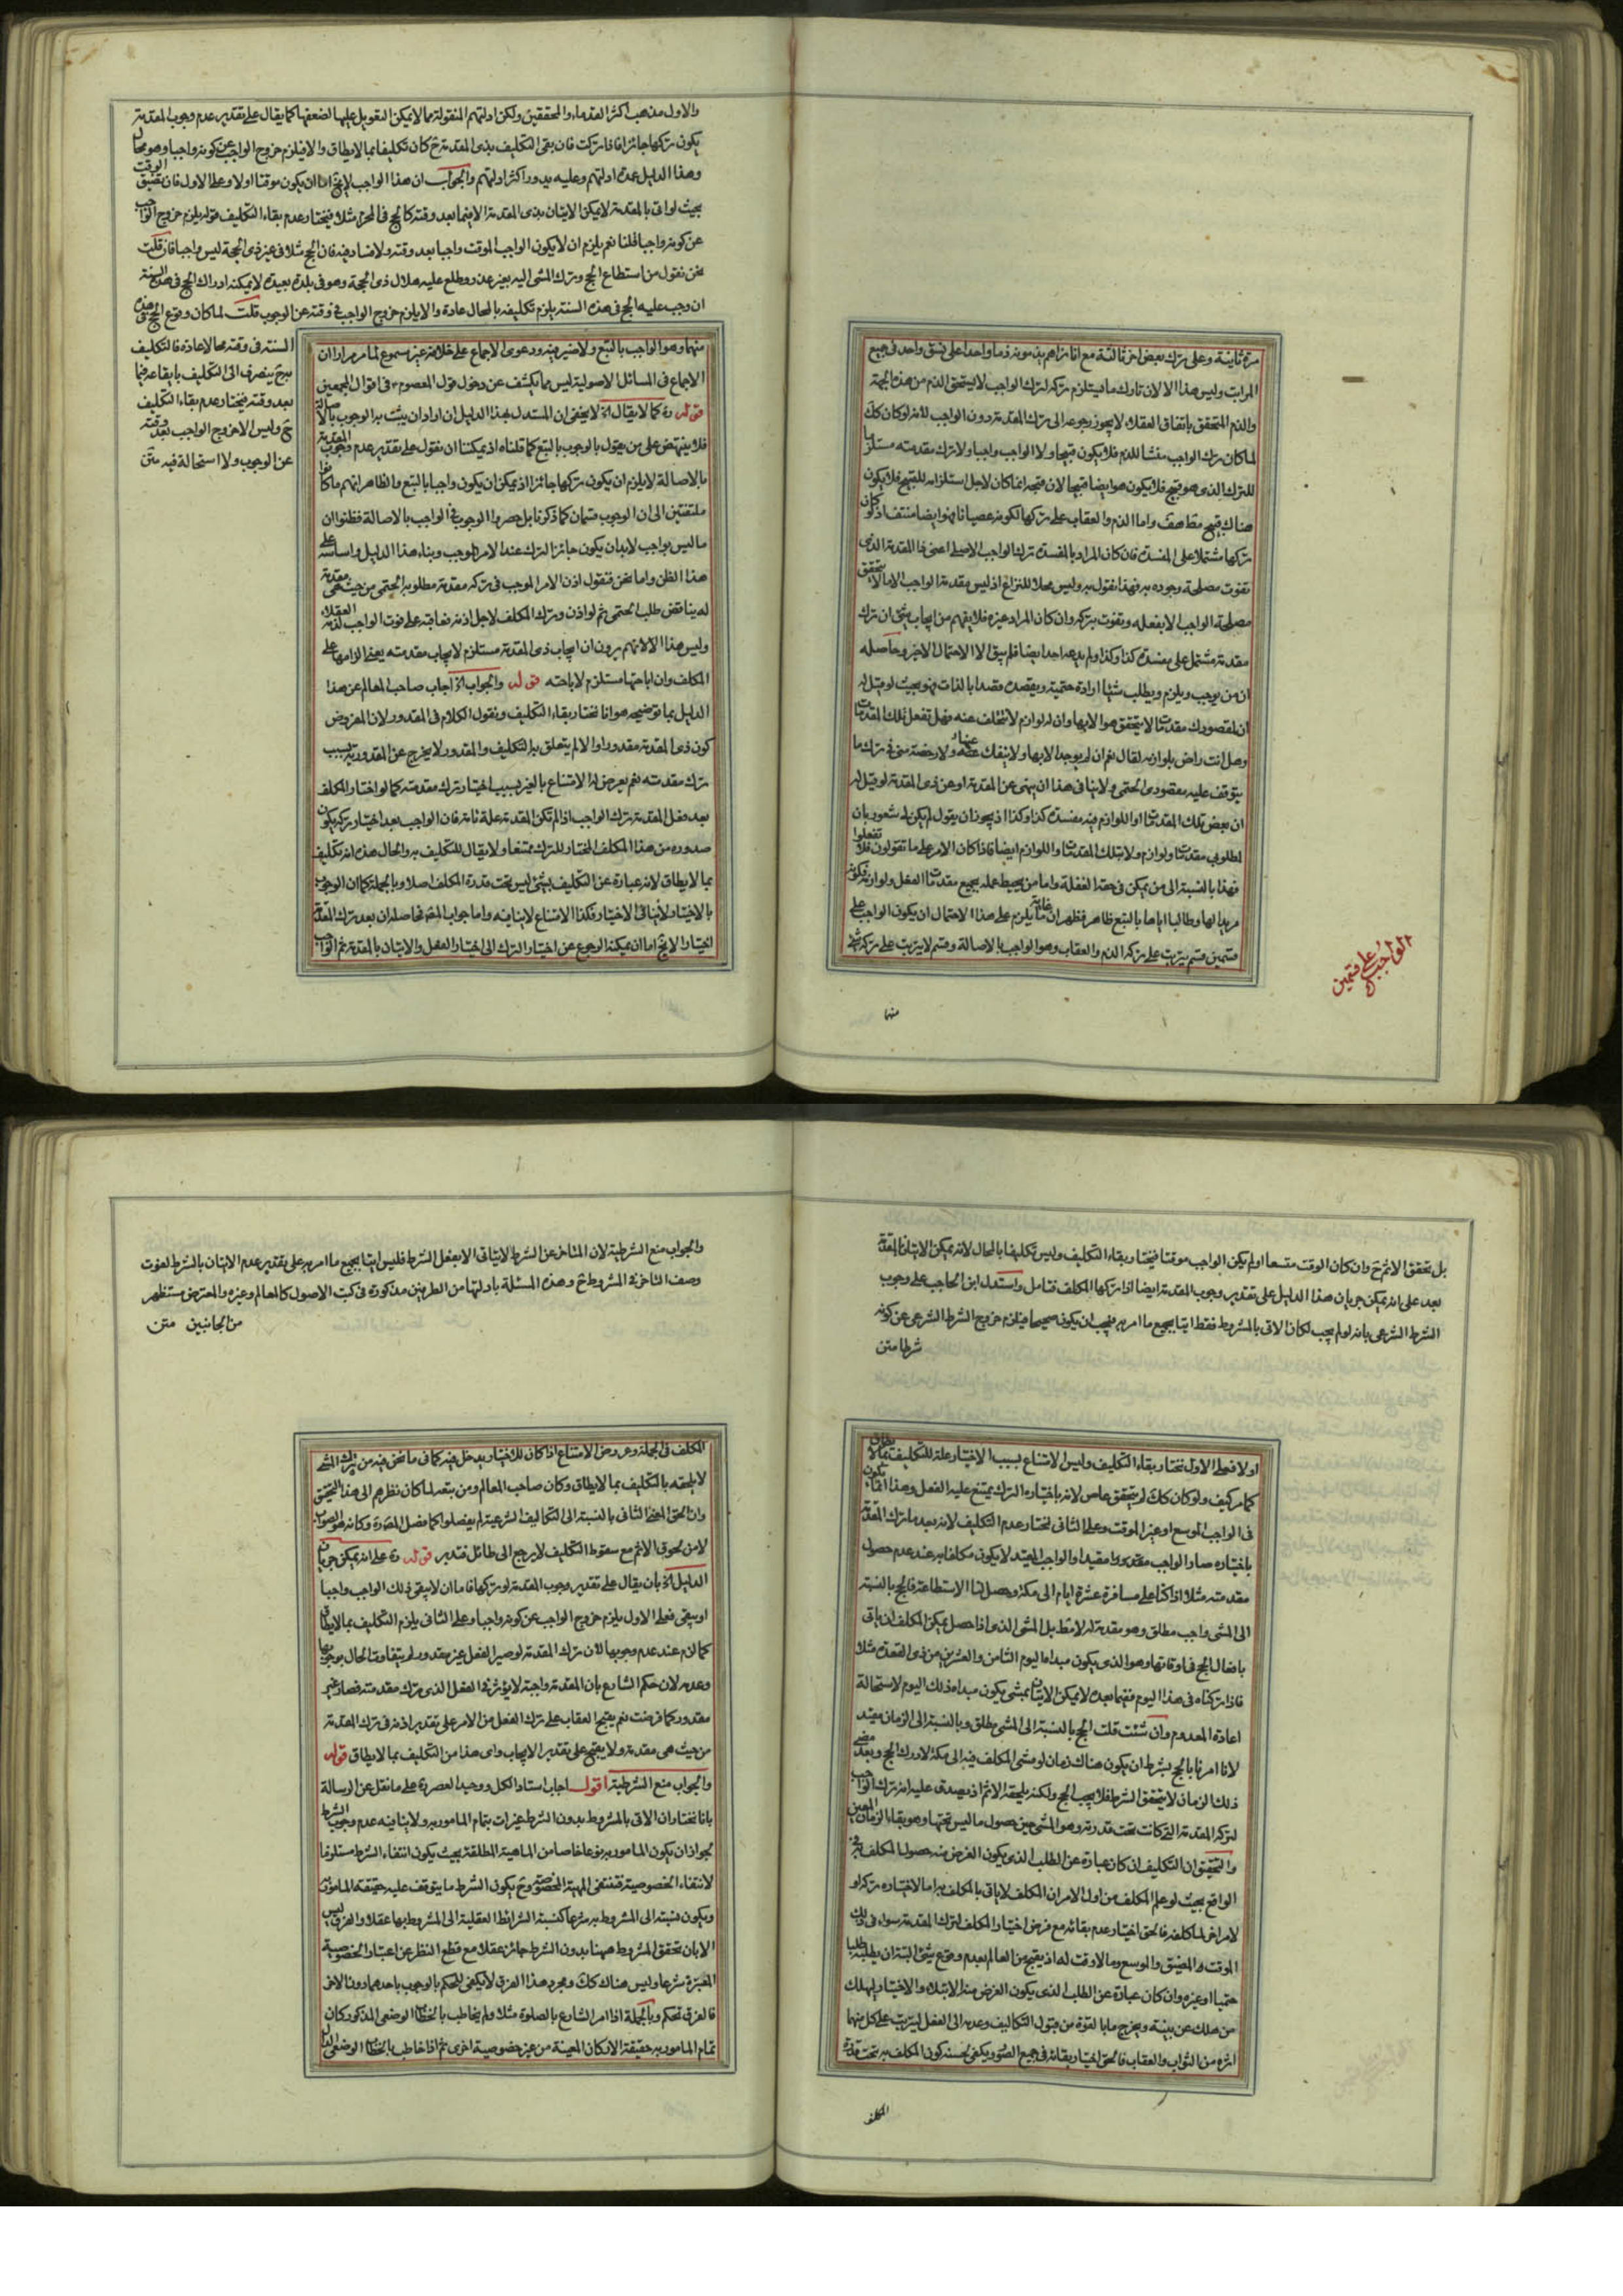 مرة ثانية وعلى ترك بعض اخر ثالثة مع انا نراهم يذمونه ذما واحدا على نسق واحد فى جميع
المراتب وليس هذا الا لان تارك ما يستلزم تركه لترك الواجب لا يستحق الذم من هذه الجهة
والذم المتحقق باتفاق العقلاء لا يجوز رجوعه الى ترك المقدمة دون الواجب لانه لو كان كك
لما كان ترك الواجب منشا للذم فلا يكون قبيحا ولا الواجب واجبا ولا ترك مقدمته مستلزما
للترك الذى هو قبيح فلا يكون هو ايضا قبيحا لان قبحه انما كان لاجل استلزامه للقبيح فلا يكون
هناك قبيح قط هف واما الذم والعقاب على تركها لكونه عصيانا فهو ايضا منتف اذ لو كان
تركها مشتملا على المفسدة فان كان المراد بالمفسدة ترك الواجب الاصلى اعنى ذا المقدمة الذى
تفوت مصلحة وجوده به فهذا نقول به وليس محلا للنزاع اذ ليس مقدمة الواجب الا ما لا يتحقق
مصلحة الواجب الا بفعله وتفوت بتركه وان كان المراد غيره فلا يفهم من ايجاب شئ ان ترك
مقدمته مشتمل على مفسدة كذا وكذا ولم يدعه احد ايضا فلم يبق الا الاحتمال الاخير وحاصله
ان من يوجب ويلزم ويطلب شيئا ارادة حتمية ويقصده قصدا بالذات فهو بحيث لو قيل له
ان لمقصودك مقدمات لا يتحقق هو الا بها وان له لوازم لا تتخلف عنه فهل تفعل تلك المقدمات
وهل انت راض بلوازمه لقال نعم ان لم يوجد الا بها ولا ينفك عنها ولا رخصة منى فى ترك ما
يتوقف عليه مقصودى الحتمى ولا ينافى هذا ان ينهى عن المقدمة او عن ذى المقدمة لو قيل له
ان بعض تلك المقدمات او اللوازم فيه مفسدة كذا وكذا اذ يجوز ان يقول لم يكن لى شعور بان
لمطلوبى مقدمات ولوازم ولا بتلك المقدمات واللوازم ايضا فاذا كان الامر على ما تقولون فلا تفعلوا
فهذا بالنسبة الى من يمكن فى حقه الغفلة واما من يحيط علمه بجميع مقدمات الفعل ولوازمه فكونه
مريدا لها وطالبا اياها بالتبع ظاهر فظهر ان غاية ما يلزم على هذا الاحتمال ان يكون الواجب على
قسمين قسم يترتب على تركه الذم والعقاب وهو الواجب بالاصالة وقسم لا يترتب على تركه شئ
منهما
الواجب على قسمين
والاول مذهب اكثر القدماء والمحققين ولكن ادلتهم المنقولة مما لا يمكن التعويل عليها لضعفها كما يقال على تقدير عدم وجوب المقدمة
يكون تركها جائزا فاذا تركت فان بقى التكليف بذى المقدمة ح كان تكليفا بما لا يطاق والا فيلزم خروج الواجب عن كونه واجبا وهو محال
وهذا الدليل عمدة ادلتهم وعليه يدور اكثر ادلتهم والجواب ان هذا الواجب لا يخ اما ان يكون موقتا اولا وعلى الاول فان تضيق الوقت
بحيث لو اتى بالمقدمة لا يمكن الاتيان بذى المقدمة الا فيما بعد وقته كالحج فى المحرم مثلا فيختار عدم بقاء التكليف قوله يلزم خروج الواجب
عن كونه واجبا قلنا نعم يلزم ان لا يكون الواجب الموقت واجبا بعد وقته ولا فساد فيه فان الحج مثلا فى غير ذى الحجة ليس واجبا فان قلت
نحن نقول من استطاع الحج وترك المشى اليه بغير عذر وطلع عليه هلال ذى الحجة وهو فى بلدة بعيدة لا يمكنه ادراك الحج فى هذه السنة
ان وجب عليه الحج فى هذه السنة يلزم تكليفه بالمحال عادة والا يلزم خروج الواجب فى وقته عن الوجوب قلت لما كان وقوع الحج فى هذه
السنة فى وقته محالا عادة فالتكليف
به ح ينصرف الى التكليف بايقاعه فيما
بعد وقته فيختار عدم بقاء التكليف
ح وليس الا خروج الواجب بعد وقته
عن الوجوب ولا استحالة فيه متن
منهما وهو الواجب بالتبع ولا ضير فيه ودعوى الاجماع على خلافه غير مسموع لما مر مرارا ان
الاجماع فى المسائل الاصولية ليس مما يكشف عن دخول قول المعصوم ع فى اقوال المجمعين
قوله ره كما لا يقال اه لا يخفى ان المستدل بهذا الدليل ان اراد ان يثبت به الوجوب بالاصالة
فلا ينتهض على من يقول بالوجوب بالتبع كما قلناه اذ يمكننا ان نقول على تقدير عدم وجوب المقدمة
بالاصالة لا يلزم ان يكون تركها جائزا اذ يمكن ان يكون واجبا بالتبع والظاهر انهم ما كانوا
ملتفتين الى ان الوجوب قسمان كما ذكرنا بل حصروا الوجوب فى الواجب بالاصالة فظنوا ان
ما ليس بواجب لابد ان يكون جائز الترك عند الامر الموجب وبناء هذا الدليل واساسه على
هذا الظن واما نحن فنقول اذن الامر الموجب فى تركه مقدمة مطلوبه الحتمى من حيث هى مقدمة
له يناقض طلب الحتمى ثم لو اذن وترك المكلف لاجل اذنه فعاقبه على فوت الواجب لذمه العقلاء
وليس هذا الا لانهم يرون ان ايجاب ذى المقدمة مستلزم لايجاب مقدمته يعنى الزامها على
المكلف وان اباحتها مستلزم لاباحته قوله والجواب اه اجاب صاحب المعالم عن هذا
الدليل بما توضيحه هو انا نختار بقاء التكليف ونقول الكلام فى المقدور لان المفروض
كون ذى المقدمة مقدورا والا لم يتعلق به التكليف والمقدور لا يخرج عن المقدورية بسبب
ترك مقدمته نعم يعرض له الامتناع بالغير بسبب اختيار ترك مقدمته كما لو اختار المكلف
بعد فعل المقدمة ترك الواجب اذا لم تكن المقدمة علة تامة فان الواجب بعد اختيار تركه يكون
صدوره من هذا المكلف المختار للترك ممتنعا ولا يقال للتكليف به والحال هذه انه تكليف
بما لا يطاق لانه عبارة عن التكليف بشئ ليس تحت قدرة المكلف اصلا وبالجملة كما ان الوجوب
بالاختيار لا ينافى الاختيار فكذا الامتناع لا ينافيه واما جواب المصنف فحاصله ان بعد ترك المقدمة
اختيارا لا يخ اما ان يمكنه الرجوع عن اختيار الترك الى اختيار الفعل والاتيان بالمقدمة ثم الواجب
بل تحقق الاثم ح وان كان الوقت متسعا او لم يكن الواجب موقتا فيختار بقاء التكليف وليس تكليفا بالمحال لانه يمكن الاتيان بالمقدمة
بعد على انه يمكن جريان هذا الدليل على تقدير وجوب المقدمة ايضا اذا تركها المكلف فتامل واستدل ابن الحاجب على وجوب
الشرط الشرعى بانه لو لم يجب لكان الاتى بالمشروط فقط اتيا بجميع ما امر به فيجب ان يكون صحيحا فيلزم خروج الشرط الشرعى عن كونه
شرطا متن
اولا فعلى الاول نختار بقاء التكليف وليس الامتناع بسبب الاختيار علة للتكليف بما لا يطاق
كما مر كيف ولو كان كك لم يتحقق عاص لانه باختياره الترك يمتنع عليه الفعل وهذا انما يكون
فى الواجب الموسع او غير الموقت وعلى الثانى نختار عدم التكليف لانه بعد ما ترك المقدمة
باختياره صار الواجب مقيدا والواجب المقيد لا يكون مكلفا به عند عدم حصول
مقدمته مثلا اذا كنا على مسافرة عشرة ايام الى مكة وحصل لنا الاستطاعة فالحج بالنسبة
الى المشى واجب مطلق وهو مقدمة له لا مط بل المشى الذى اذا حصل يمكن المكلف ان ياتى
بافعال الحج فى اوقاتها وهو الذى يكون مبداه اليوم الثامن والعشرين من ذى القعدة مثلا
فاذا تركناه فى هذا اليوم ففيما بعده لا يمكن الاتيان بمشى يكون مبداه ذلك اليوم لاستحالة
اعادة المعدوم وان شئت قلت الحج بالنسبة الى المشى مطلق وبالنسبة الى الزمان مقيد
لانا امرنا بالحج بشرط ان يكون هناك زمان لو مشى المكلف فيه الى مكة لادرك الحج وبعد مضى
ذلك الزمان لا يتحقق الشرط فلا يجب الحج ولكنه يلحقه الاثم اذ يصدق عليه انه ترك الواجب
لتركه المقدمة التى كانت تحت قدرته وهو المشى حين حصول ما ليس تحتها وهو بقاء الزمان المعين
والتحقيق ان التكليف ان كان عبارة عن الطلب الذى يكون الغرض منه حصول المكلف به فى
الواقع بحيث لو علم المكلف من اول الامر ان المكلف لا ياتى بالمكلف به اما لاختياره تركه او
لامر اخر لما كلفه فالحق اختيار عدم بقائه مع فرض اختيار المكلف لترك المقدمة سواء فى ذلك
الموقت والمضيق والموسع وما لا وقت له اذ يقبح من العالم بعدم وقوع شئ البتة ان يطلبه طلبا
حتميا او غيره وان كان عبارة عن الطلب الذى يكون الغرض منه الابتلاء والاختيار ليهلك
من هلك عن بينة ويخرج ما بالقوة من قبول التكاليف وعدمه الى الفعل ليترتب على كل منهما
اثره من الثواب والعقاب فالحق اختيار بقائه فى جميع الصور ويكفى لحسنه كون المكلف به تحت قدرة
المكلف
والجواب منع الشرطية لان المتاخر عن الشرط لا يتاتى الا بفعل الشرط فليس اتيا بجميع ما امر به على تقدير عدم الاتيان بالشرط لفوت
وصف التاخر فى المشروط ح وهذه المسئلة بادلتها من الطرفين مذكورة فى كتب الاصول كالمعالم وغيره والمعترض مستظهر
من الجانبين متن
المكلف فى الجملة وعروض الامتناع اذا كان للاختيار مدخل فيه كما فى ما نحن فيه من ترك المشى
لا يلحقه بالتكليف بما لا يطاق وكان صاحب المعالم ومن يتبعه لما كان نظرهم الى هذا التحقيق
وان الحق المعنى الثانى بالنسبة الى التكاليف الشرعية لم يفصلوا كما فصل المصنف ره وكانه هو الصواب
لا من لحوق الاثم مع سقوط التكليف لا يرجع الى طائل فتدبر قوله ره على انه يمكن جريان
الدليل اه بان يقال على تقدير وجوب المقدمة لو تركها فاما ان لا يبقى ذلك الواجب واجبا
او يبقى فعلى الاول يلزم خروج الواجب عن كونه واجبا وعلى الثانى يلزم التكليف بما لا يطاق
كما لزم عند عدم وجوبها لان ترك المقدمة لو صير الفعل غير مقدور لم يتفاوت الحال بوجوبها
وعدمه لان حكم الشارع بان المقدمة واجبة لا يؤثر فى الفعل الذى ترك مقدمته فصار غير
مقدور كما فرضت نعم يقبح العقاب على ترك الفعل من الامر على تقدير اذنه فى ترك المقدمة
من حيث هى مقدمة ولا يقبح على تقدير الايجاب واى هذا من التكليف بما لا يطاق قوله
والجواب منع الشرطية اقول اجاب استاد الكل ووحيد العصر ره على ما نقل عن الرسالة
بانا نختار ان الاتى بالمشروط بدون الشرط غير ات بتمام المامور به ولا ينافيه عدم وجوب الشرط
لجواز ان يكون المامور به نوعا خاصا من الماهية المطلقة بحيث يكون انتفاء الشرط مستلزما
لانتفاء الخصوصية فتنتفى المهية المخصوصة وح يكون الشرط ما يتوقف عليه حقيقة المامور به
ويكون نسبته الى المشروط به شرعا كنسبة الشرائط العقلية الى المشروط بها عقلا والفرق ليس
الا بان تحقق المشروط ههنا بدون الشرط جائز عقلا مع قطع النظر عن اعتبار الخصوصية
المعتبرة شرعا وليس هناك كك ومجرد هذا الفرق لا يكفى للحكم بالوجوب باحدهما دون الاخر
فالفرق تحكم وبالجملة اذا امر الشارع بالصلوة مثلا ولم يخاطب بالخطاب الوضعى المذكور كان
تمام المامور به حقيقة الاركان المعينة من غير خصوصية اخرى ثم اذا خاطب بالخطاب الوضعى الدال